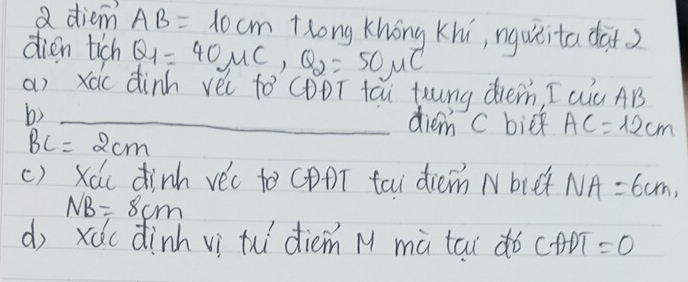 2 điểm AB = 10cm trong không khí, người ta đặt 2
điện tích Q1 = 40μC, Q2 = 50μC
a) xác định véc tơ CĐĐT tại trung điểm I của AB
b) ____________________ điểm C biết AC = 12cm
BC = 2cm
c) Xác định véc tơ CĐĐT tại điểm N biết NA = 6cm,
NB = 8cm
d) xác định vị trí điểm M mà tại đó CĐĐT = 0